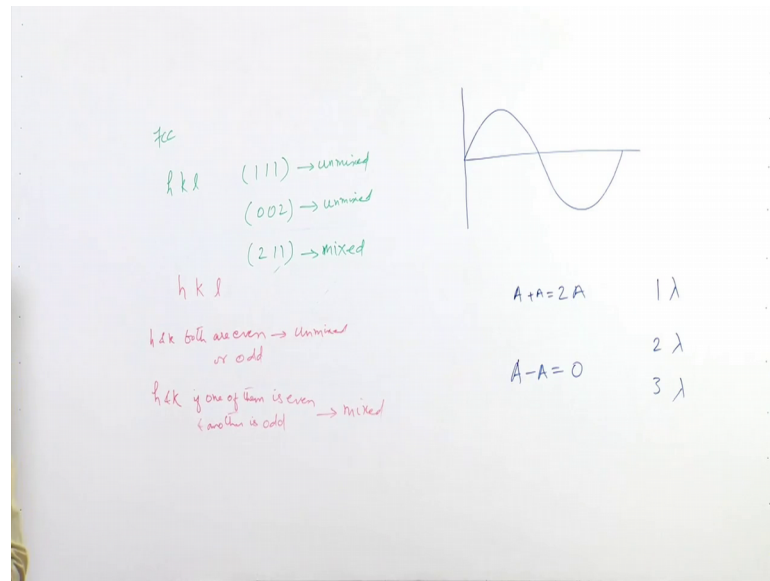 fcc
h k l (111) → unmixed
(002) → unmixed
(211) → mixed
h k l
h & k both are even → Unmixed
or odd
h & k if one of them is even
& another is odd → mixed
A + A = 2A
A - A = 0
1 λ
2 λ
3 λ